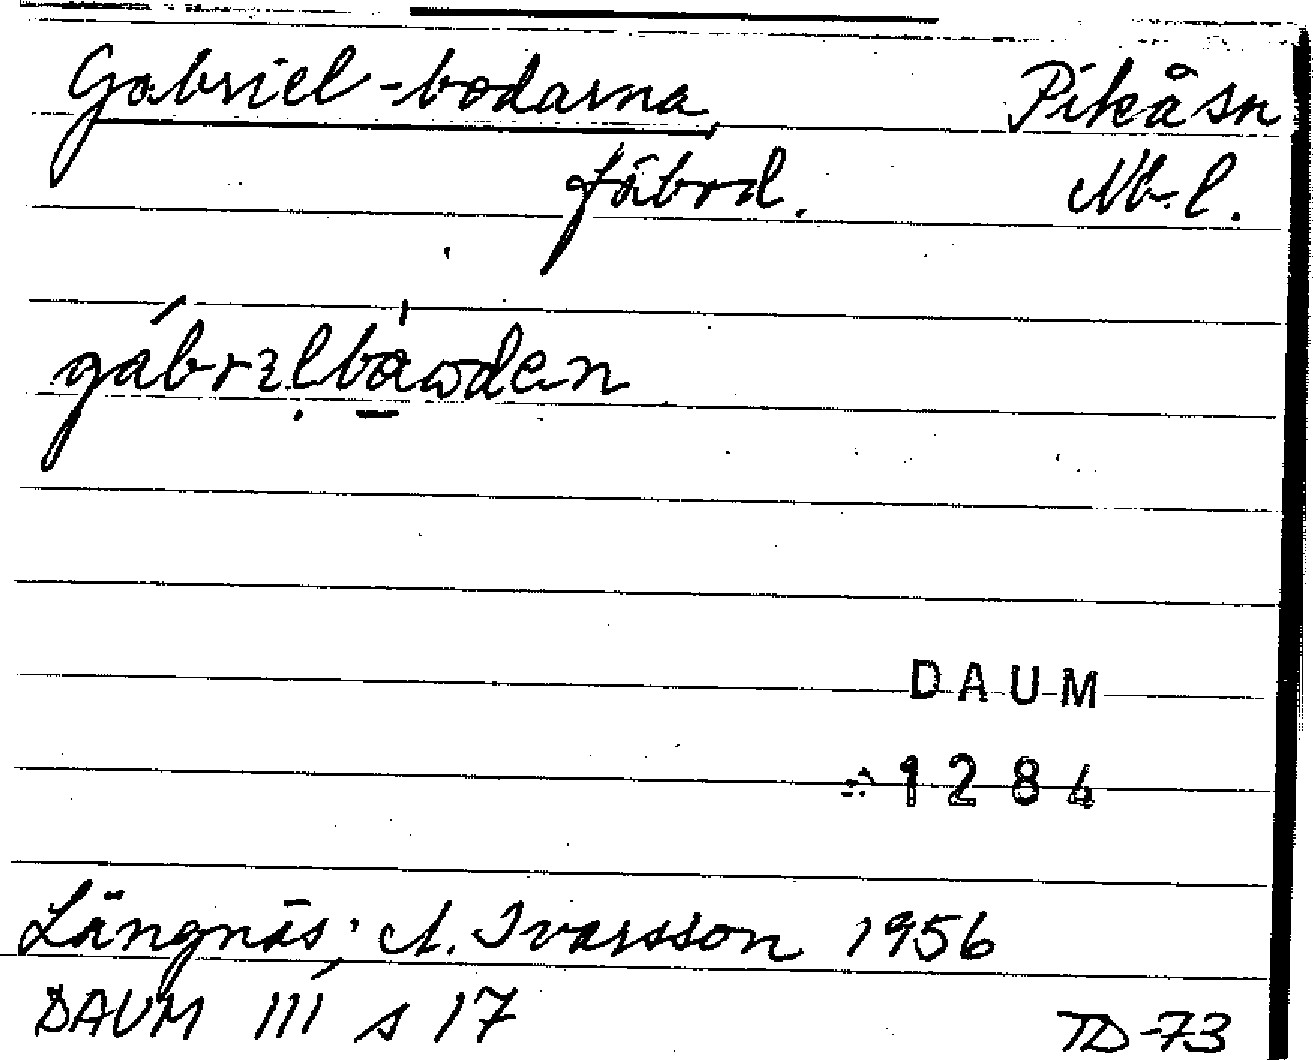 Gabriel-bodarna, Pikåsn
fäbod. Nb. l.
DAUM
1284
Långnäs; A. Ivarsson 1956
DAUM III s 17 TD-73